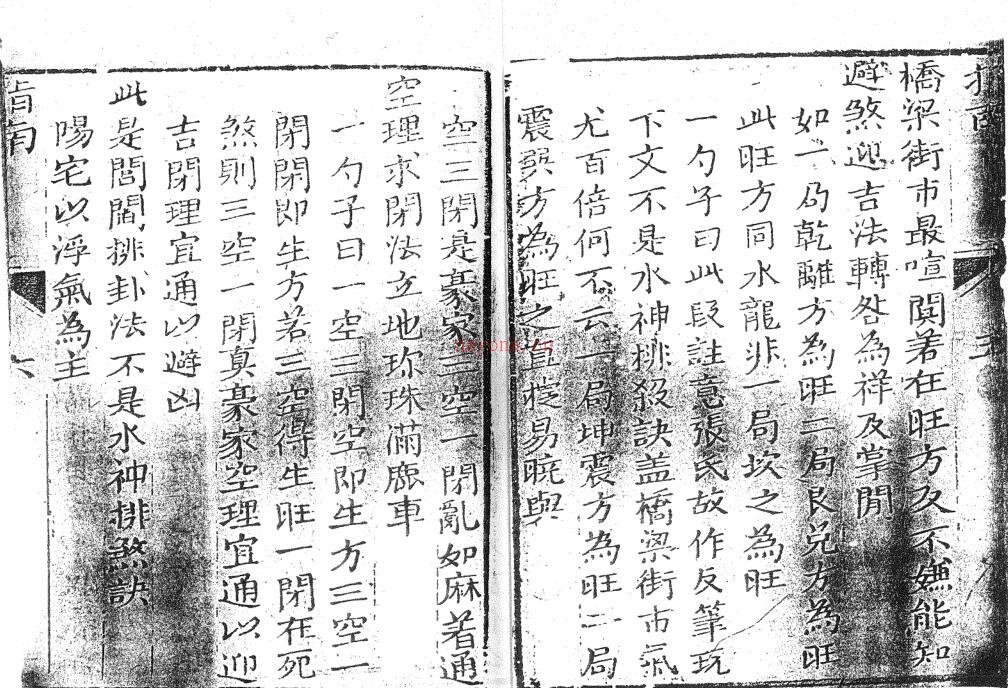 指南
橋梁街市最喧闐若在旺方反不嫌能知
避煞迎吉法轉咎為祥反掌閒
如一局乾離方為旺二局艮兌方為旺
此旺方同水龍非一局坎之為旺
一勺子曰此段註意張氏故作反筆玩
下文不是水神排殺訣盖橋梁街市氣
尤百倍何不云一局坤震方為旺二局
震巽方為旺之直捷易曉與
五
空三閉是豪家三空一閉亂如麻着通
空理求閉法立地珍珠滿鹿車
一勺子曰一空三閉空即生方三空一
閉閉即生方若三空得生旺一閉在死
煞則三空一閉真豪家空理宜通以迎
吉閉理宜通以避凶
此是閭閻排卦法不是水神排煞訣
陽宅以浮氣為主
指南
六
nayona.cn